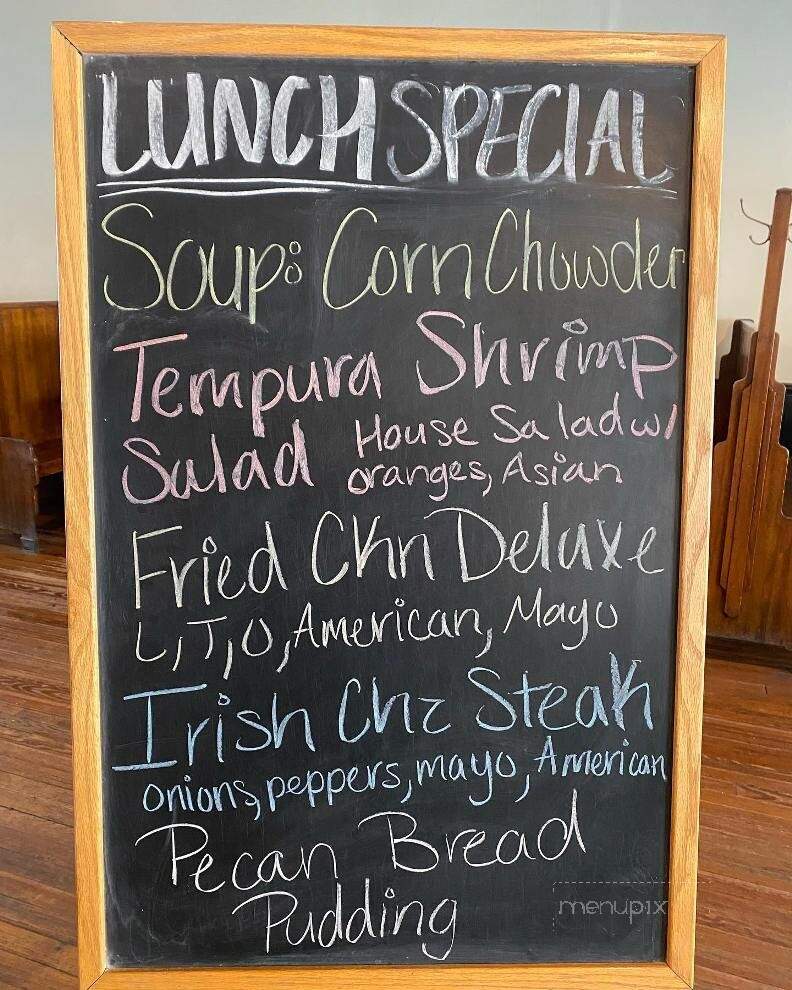 LUNCH SPECIAL
Soup: Corn Chowder
Tempura Shrimp
Salad House Salad w/
oranges, Asian
Fried Ckn Deluxe
L, T, O, American, Mayo
Irish Chz Steak
onions, peppers, mayo, American
Pecan Bread
Pudding
menupix